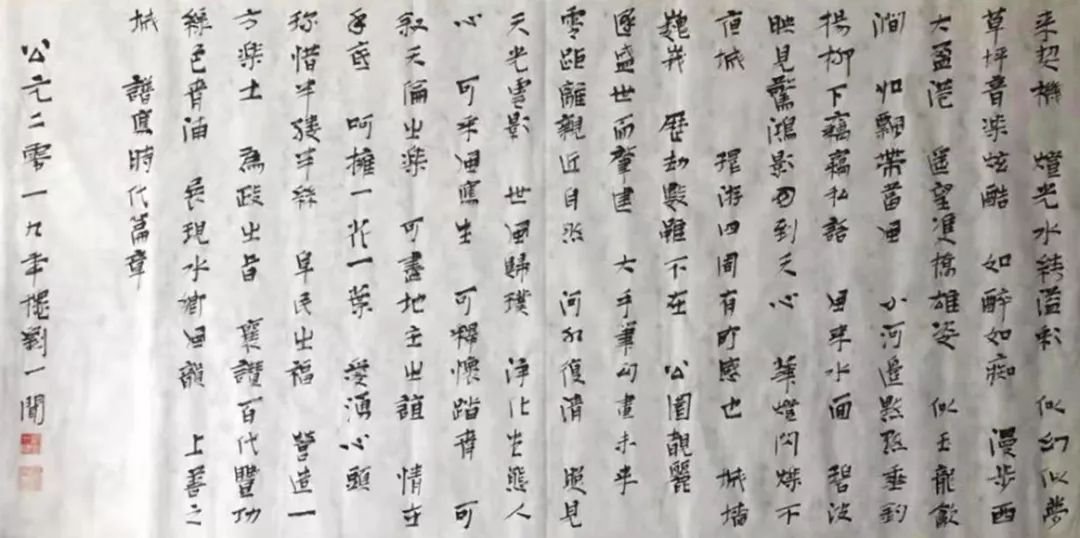 来契機 燈光水結溢彩 似幻似夢
草坪音樂炫酷 如醉如痴 漫步西
大盈港 遥望渡橋雄姿 似玉龍歃
澗 如飄帶當風 小河邊點點垂釣
楊柳下竊竊私語 風来水面 碧波
映見驚鴻影 到天心 華燈閃爍不
夜城 環游四周有所感也 城墻
巍峩 歷劫數雖不在 公園靚麗
逐盛世而肇建 大手筆勾畫未来
零距離親近自然 河水復清 照見
天光雲影 世風歸璞 淨化生態人
心 可采風寫生 可釋懷踏青 可
叙天倫之樂 可盡地主之誼 情在
手底 呵擁一花一葉 愛湧心頭
珍惜半縷半絲 阜民之福 營造一
方樂土 為政之旨 襄讚百代豐功
綠色 展現水鄉風韻 上善之
城 譜寫時代篇章
公元二零一九年 劉一聞